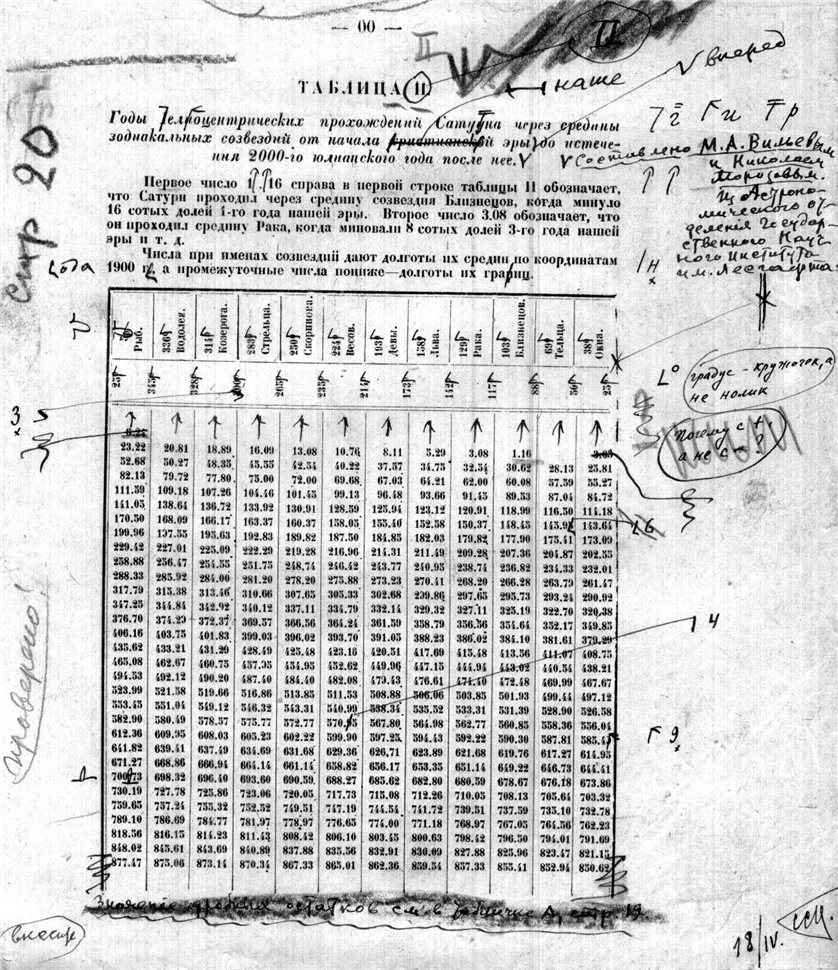 — 00 —
II
II
ТАБЛИЦА II
наше
вперед
Годы Гелиоцентрических прохождений Сатурна через средины
зодиакальных созвездий от начала христианской эры до истече-
ния 2000-го юлианского года после нее.
Составлено М. А. Вильевым
и Николаем
Морозовым.
Из Астроно-
мического от-
деления Государ-
ственного Науч-
ного Института
им. Лесгафта.
стр 20
Первое число 1.16 справа в первой строке таблицы II обозначает,
что Сатурн проходил через средину созвездия Близнецов, когда минуло
16 сотых долей 1-го года нашей эры. Второе число 3.08 обозначает, что
он проходил средину Рака, когда миновали 8 сотых долей 3-го года нашей
эры и т. д.
года
Числа при именах созвездий дают долготы их средин по координатам
1900 г., а промежуточные числа пониже—долготы их границ.
Рыб. Водолея. Козерога. Стрельца. Скорпиона. Весов. Девы. Льва. Рака. Близнецов. Тельца. Овна.
градус - кружочек, а
не нолик
Почему с +,
а не с - ?
23.22 20.81 18.89 16.09 13.08 10.76 8.11 5.29 3.08 1.16
52.68 50.27 48.35 45.55 42.54 40.22 37.57 34.75 32.54 30.62 28.13 25.81
82.13 79.72 77.80 75.00 72.00 69.68 67.03 64.21 62.00 60.08 57.59 55.27
111.59 109.18 107.26 104.46 101.45 99.13 96.48 93.66 91.45 89.53 87.04 84.72
141.05 138.64 136.72 133.92 130.91 128.59 125.94 123.12 120.91 118.99 116.50 114.18
170.50 168.09 166.17 163.37 160.37 158.05 155.40 152.58 150.37 148.45 145.96 143.64
199.96 197.55 195.63 192.83 189.82 187.50 184.85 182.03 179.82 177.90 175.41 173.09
229.42 227.01 225.09 222.29 219.28 216.96 214.31 211.49 209.28 207.36 204.87 202.55
258.88 256.47 254.55 251.75 248.74 246.42 243.77 240.95 238.74 236.82 234.33 232.01
288.33 285.92 284.00 281.20 278.20 275.88 273.23 270.41 268.20 266.28 263.79 261.47
317.79 315.38 313.46 310.66 307.65 305.33 302.68 299.86 297.65 295.73 293.24 290.92
347.25 344.84 342.92 340.12 337.11 334.79 332.14 329.32 327.11 325.19 322.70 320.38
376.70 374.29 372.37 369.57 366.56 364.24 361.59 358.79 356.56 354.64 352.17 349.85
406.16 403.75 401.83 399.03 396.02 393.70 391.05 388.23 386.02 384.10 381.61 379.29
435.62 433.21 431.29 428.49 425.48 423.16 420.51 417.69 415.48 413.56 411.07 408.75
465.08 462.67 460.75 457.95 454.95 452.62 449.96 447.15 444.94 443.02 440.54 438.21
494.53 492.12 490.20 487.40 484.40 482.08 479.43 476.61 474.40 472.48 469.99 467.67
523.99 521.58 519.66 516.86 513.85 511.53 508.88 506.06 503.85 501.93 499.44 497.12
553.45 551.04 549.12 546.32 543.31 540.99 538.34 535.52 533.31 531.39 528.90 526.58
582.90 580.49 578.57 575.77 572.77 570.45 567.80 564.98 562.77 560.85 558.36 556.04
612.36 609.95 608.03 605.23 602.22 599.90 597.25 594.43 592.22 590.30 587.81 585.49
641.82 639.41 637.49 634.69 631.68 629.36 626.71 623.89 621.68 619.76 617.27 614.95
671.27 668.86 666.94 664.14 661.14 658.82 656.17 653.35 651.14 649.22 646.73 644.41
700.73 698.32 696.40 693.60 690.59 688.27 685.62 682.80 680.59 678.67 676.18 673.86
730.19 727.78 725.86 723.06 720.05 717.73 715.08 712.26 710.05 708.13 705.64 703.32
759.65 757.24 755.32 752.52 749.51 747.19 744.54 741.72 739.51 737.59 735.10 732.78
789.10 786.69 784.77 781.97 778.97 776.65 774.00 771.18 768.97 767.05 764.56 762.23
818.56 816.15 814.23 811.43 808.42 806.10 803.45 800.63 798.42 796.50 794.01 791.69
848.02 845.61 843.69 840.89 837.88 835.56 832.91 830.09 827.88 825.96 823.47 821.15
877.47 875.06 873.14 870.34 867.33 865.01 862.36 859.54 857.33 855.41 852.94 850.62
проверено!
Значение дробных остатков см. в табличке А, стр. 19.
18/IV.